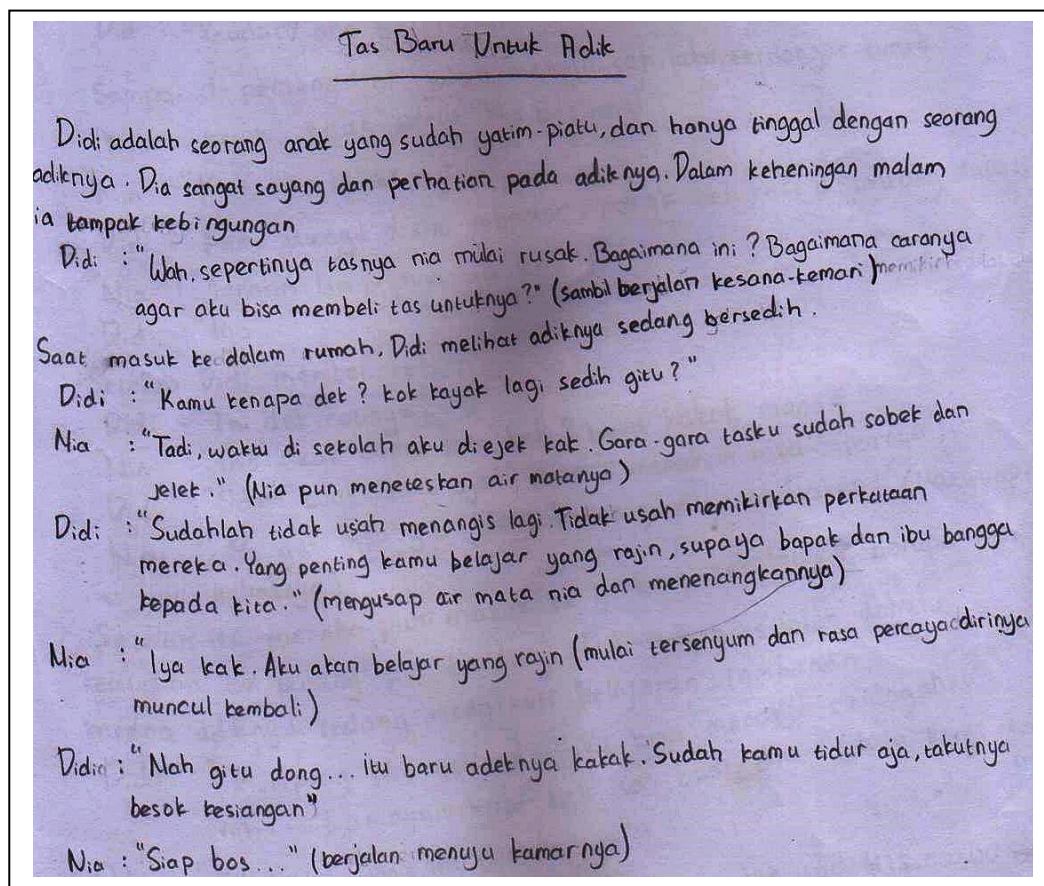 Tas Baru Untuk Adik
Didi adalah seorang anak yang sudah yatim-piatu, dan hanya tinggal dengan seorang
adiknya. Dia sangat sayang dan perhatian pada adiknya. Dalam keheningan malam
ia tampak kebingungan
Didi : "Wah, sepertinya tasnya nia mulai rusak. Bagaimana ini? Bagaimana caranya
agar aku bisa membeli tas untuknya?" (sambil berjalan kesana-kemari)
Saat masuk ke dalam rumah, Didi melihat adiknya sedang bersedih.
Didi : "Kamu kenapa dek? kok kayak lagi sedih gitu?"
Nia : "Tadi, waktu di sekolah aku diejek kak. Gara-gara tasku sudah sobek dan
jelek." (Nia pun meneteskan air matanya)
Didi : "Sudahlah tidak usah menangis lagi. Tidak usah memikirkan perkataan
mereka. Yang penting kamu belajar yang rajin, supaya bapak dan ibu bangga
kepada kita." (mengusap air mata nia dan menenangkannya)
Nia : "Iya kak. Aku akan belajar yang rajin (mulai tersenyum dan rasa percayacdirinya
muncul kembali)
Didin : "Nah gitu dong... itu baru adeknya kakak. Sudah kamu tidur aja, takutnya
besok kesiangan"
Nia : "Siap bos..." (berjalan menuju kamarnya)